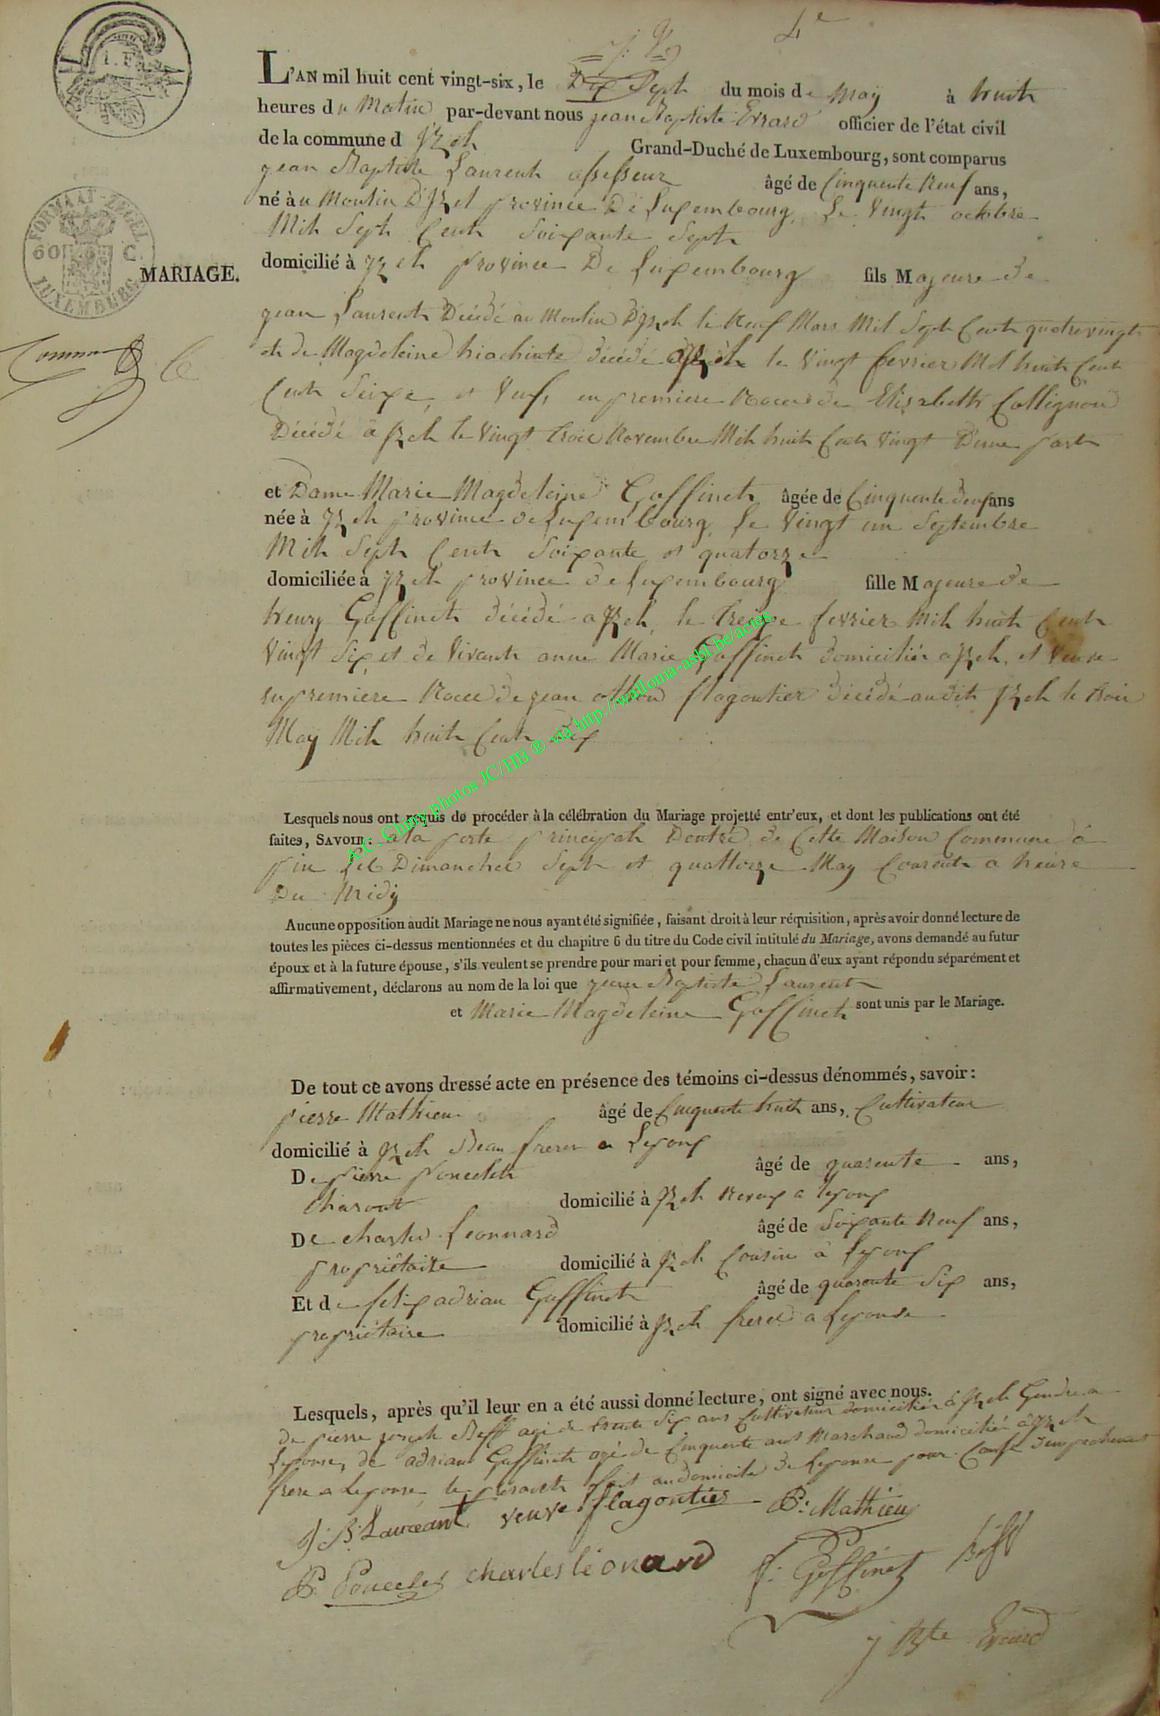 4e
L'AN mil huit cent vingt-six, le Dix Sept du mois de May à huit
heures du Matin par-devant nous jean Baptiste Errard officier de l'état civil
de la commune d'Izel Grand-Duché de Luxembourg, sont comparus
jean Baptiste Laurent assesseur âgé de Cinquente Neuf ans,
né à u Moulin D'Izel province De Luxembourg, Le Vingt octobre
Mil Sept Cent Soixante Sept
FORMAAT-ZEGEL
60 C.
LUXEMBURG
MARIAGE.
domicilié à Izel province De Luxembourg fils Majeure de
jean Laurent Décédé au Moulin D'Izel le Neuf Mars Mil Sept Cent quatrevingt
et de Magdeleine hiachinte décédé le Vingt fevrier Mil huit Cent
Cent Seize, et Veuf, en premiere Noce de Elisabeth Collignon
Décédé à Izel le Vingt trois Novembre Mil huit Cent Vingt D'une part
et Dame Marie Magdeleine Goffinet âgée de Cinquente deux ans
née à Izel province de Luxembourg, Le Vingt un Septembre
Mil Sept Cent Soixante et quatorze
domiciliée à Izel province de Luxembourg fille Majeure de
henry Goffinet décédé a Izel, le treize fevrier Mil huit Cent
Vingt Six, et de Vivante anne Marie Goffinet domiciliée a Izel, et Veuve
en premiere Noce de jean flagontier décédé audit Izel le trois
May Mil huit Cent dix
A.C. Chiny photos JC/HB ® via http://walloma-asbl.be/actes
Lesquels nous ont requis de procéder à la célébration du Mariage projetté entr'eux, et dont les publications ont été
faites, SAVOIR: a la porte principale Dentré de Cette Maison Commune à
pin Les Dimanches Sept et quattorze May Courente a heure
Du Midy
Aucune opposition audit Mariage ne nous ayant été signifiée, faisant droit à leur réquisition, après avoir donné lecture de
toutes les pièces ci-dessus mentionnées et du chapitre 6 du titre du Code civil intitulé du Mariage, avons demandé au futur
époux et à la future épouse, s'ils veulent se prendre pour mari et pour femme, chacun d'eux ayant répondu séparément et
affirmativement, déclarons au nom de la loi que jean Baptiste Laurent
et Marie Magdeleine Goffinet sont unis par le Mariage.
De tout ce avons dressé acte en présence des témoins ci-dessus dénommés, savoir:
pierre Mathieu âgé de Cinquente huit ans, Cultivateur
domicilié à Izel Beau frere a Lepoux
De pierre poncelet âgé de quarente ans,
Charont domicilié à Izel Neveux a lepoux
De charles Leonnard âgé de Soixante Neuf ans,
propriétaire domicilié à Izel Cousin à Lepoux
Et de felix adrian Goffinet âgé de quarente Six ans,
propriétaire domicilié à Izel frere a Lepouse
Lesquels, après qu'il leur en a été aussi donné lecture, ont signé avec nous.
de pierre joseph Beff agé de trente Six ans Cultivateur domicilié à Izel Gendre a
Lepouse, de adrian Goffinet agé de Cinquente ans Marchand domicilié à Izel
frere a Lepouse, le present fait au domicile de Lepouse pour Cause dempechement
J: B: Laureant veuve flagontier P: Mathieu
P. Poncelet charles léonard f: Goffinet Beff
j Bte Errard